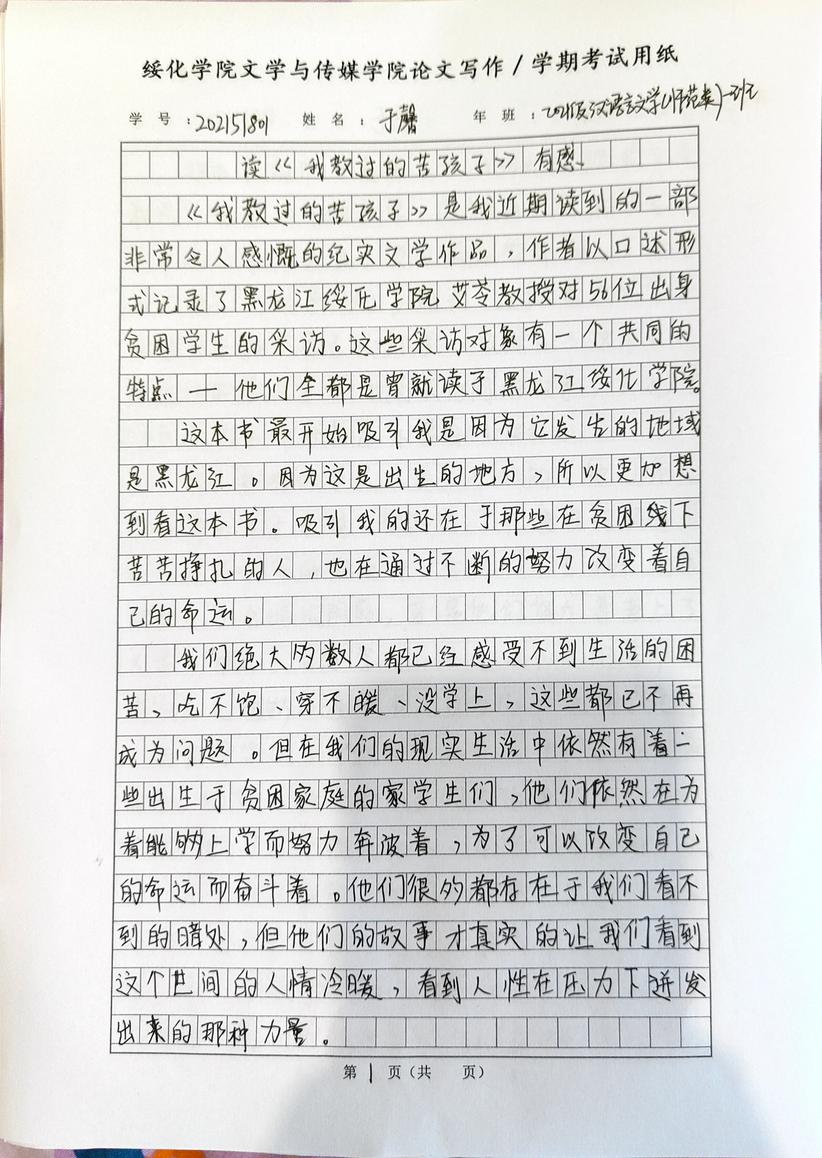 绥化学院文学与传媒学院论文写作/学期考试用纸
学号：202151801 姓名：于馨 年班：2021级汉语言文学(师范类)一班
读《我教过的苦孩子》有感
《我教过的苦孩子》是我近期读到的一部
非常令人感慨的纪实文学作品，作者以口述形
式记录了黑龙江绥化学院艾苓教授对56位出身
贫困学生的采访。这些采访对象有一个共同的
特点—他们全都是曾就读于黑龙江绥化学院。
这本书最开始吸引我是因为它发生的地域
是黑龙江。因为这是出生的地方，所以更加想
到看这本书。吸引我的还在于那些在贫困线下
苦苦挣扎的人，也在通过不断的努力改变着自
己的命运。
我们绝大多数人都已经感受不到生活的困
苦，吃不饱、穿不暖、没学上，这些都已不再
成为问题。但在我们的现实生活中依然有着一
些出生于贫困家庭的家学生们，他们依然在为
着能够上学而努力奔波着，为了可以改变自己
的命运而奋斗着。他们很多都存在于我们看不
到的暗处，但他们的故事才真实的让我们看到
这个世间的人情冷暖，看到人性在压力下迸发
出来的那种力量。
第1页(共 页)